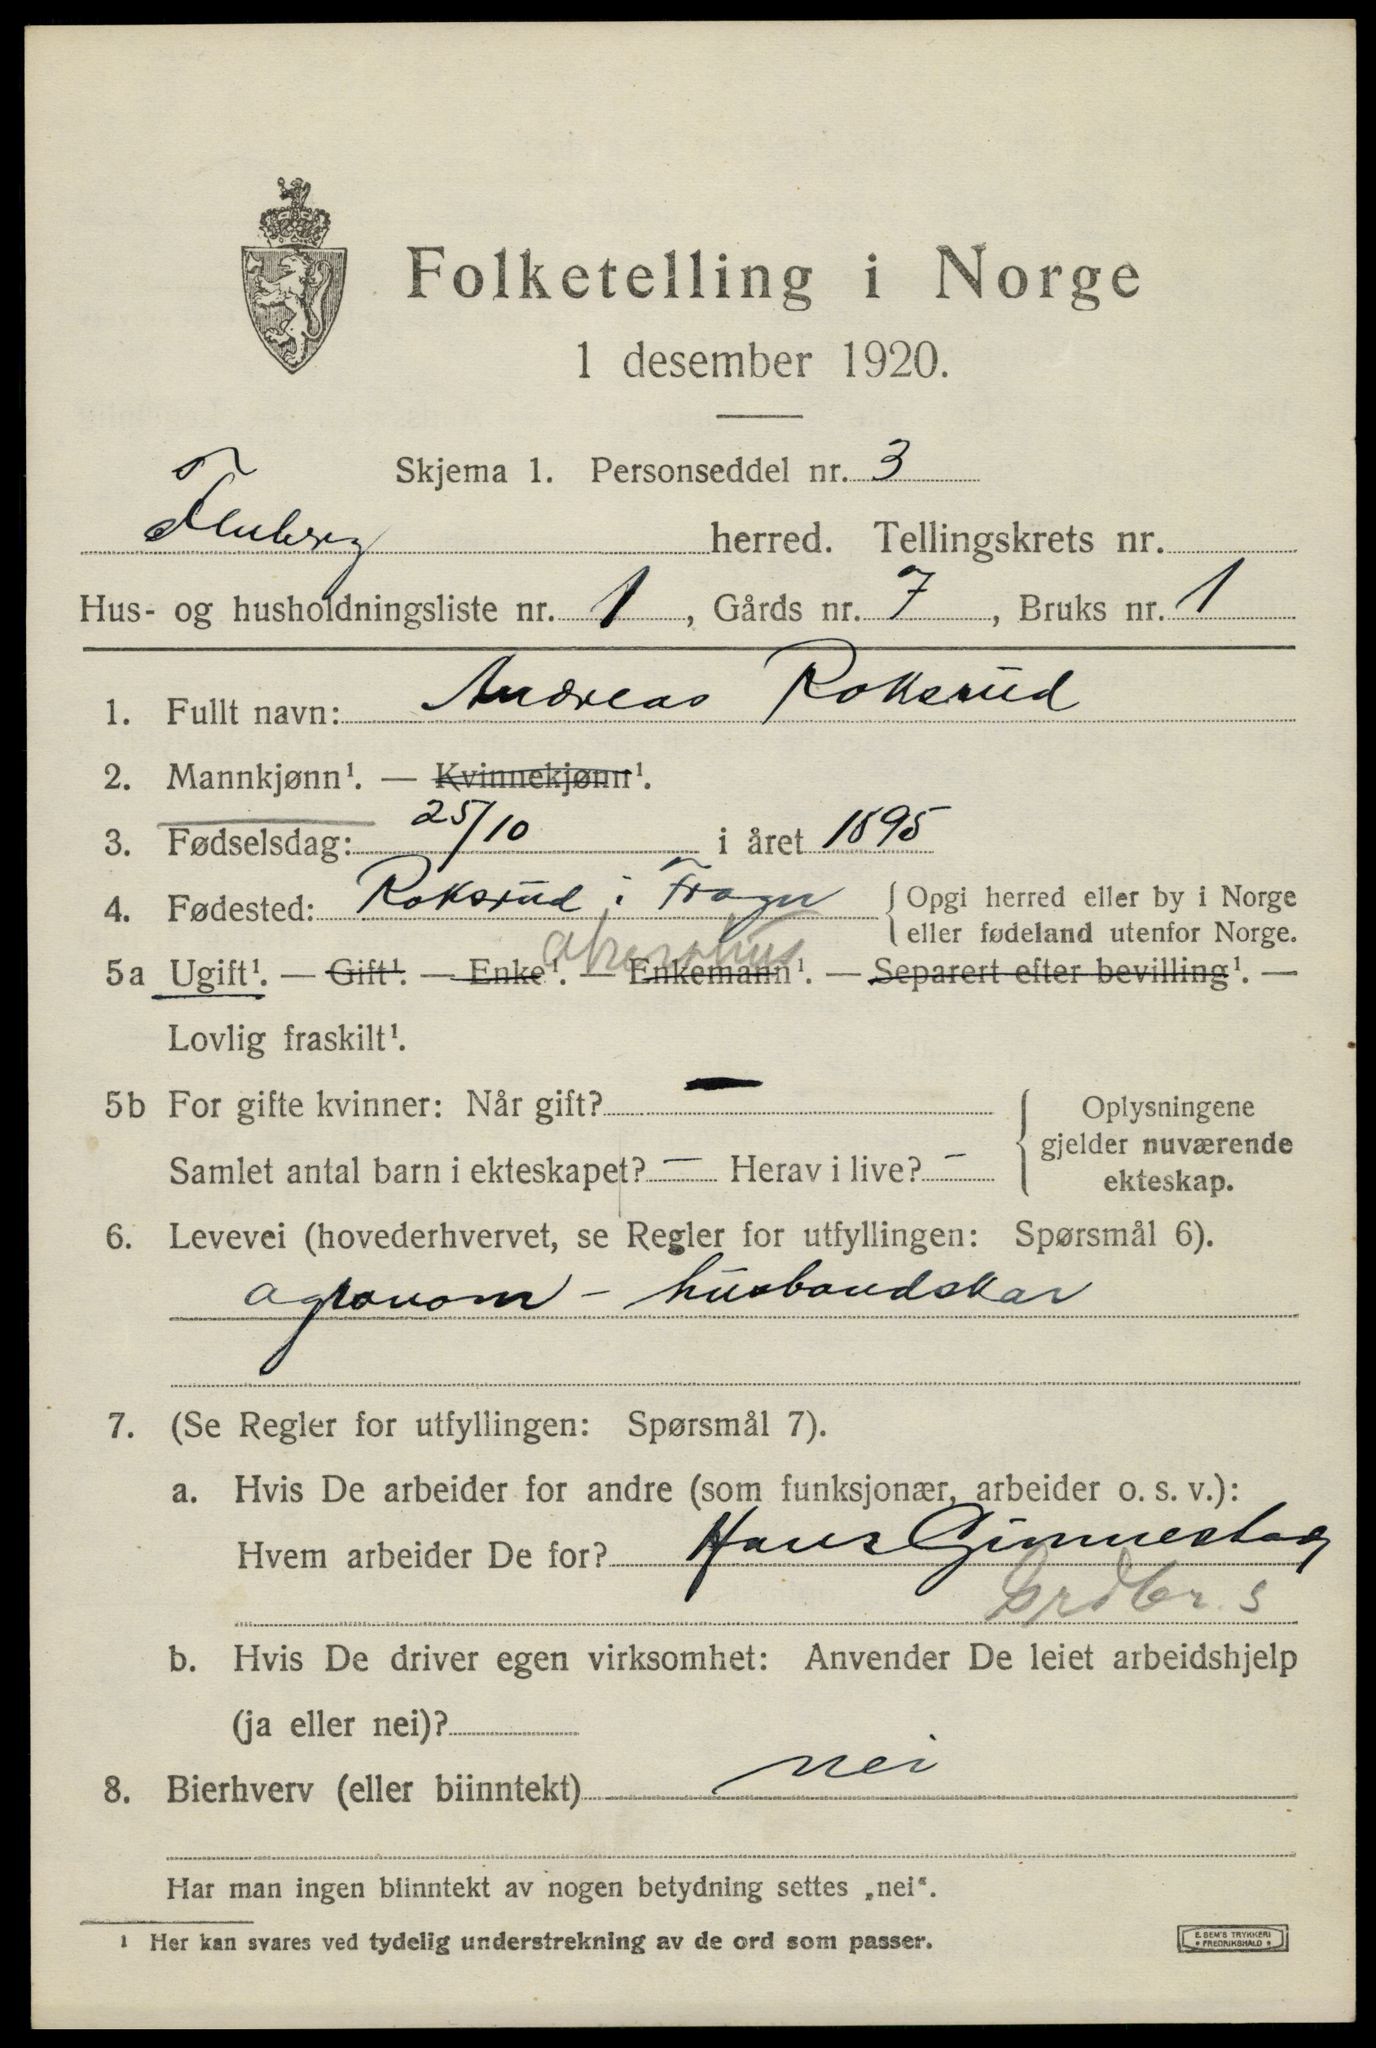 Folketelling i Norge
1 desember 1920.
Skjema 1. Personseddel nr. 3
Fluberg herred. Tellingskrets nr.
Hus- og husholdningsliste nr. 1, Gårds nr. 7, Bruks nr. 1
1. Fullt navn: Andreas Roksrud
2. Mannkjønn¹. — Kvinnekjønn¹.
3. Fødselsdag: 25/10 i året 1895
4. Fødested: Roksrud i Frogn { Opgi herred eller by i Norge
eller fødeland utenfor Norge.
Akershus
5a Ugift¹. — Gift¹. — Enke¹. — Enkemann¹. — Separert efter bevilling¹. —
Lovlig fraskilt¹.
5b For gifte kvinner: Når gift? — { Oplysningene
gjelder nuværende
Samlet antal barn i ekteskapet? — Herav i live? —
ekteskap.
6. Levevei (hovederhvervet, se Regler for utfyllingen: Spørsmål 6).
agronom – husbondskar
7. (Se Regler for utfyllingen: Spørsmål 7).
a. Hvis De arbeider for andre (som funksjonær, arbeider o. s. v.):
Hvem arbeider De for? Hans Ginnestad
Grdbr. s
b. Hvis De driver egen virksomhet: Anvender De leiet arbeidshjelp
(ja eller nei)?
8. Bierhverv (eller biinntekt) nei
Har man ingen biinntekt av nogen betydning settes „nei“.
¹ Her kan svares ved tydelig understrekning av de ord som passer.
E. SEM'S TRYKKERI
• FREDRIKSHALD •